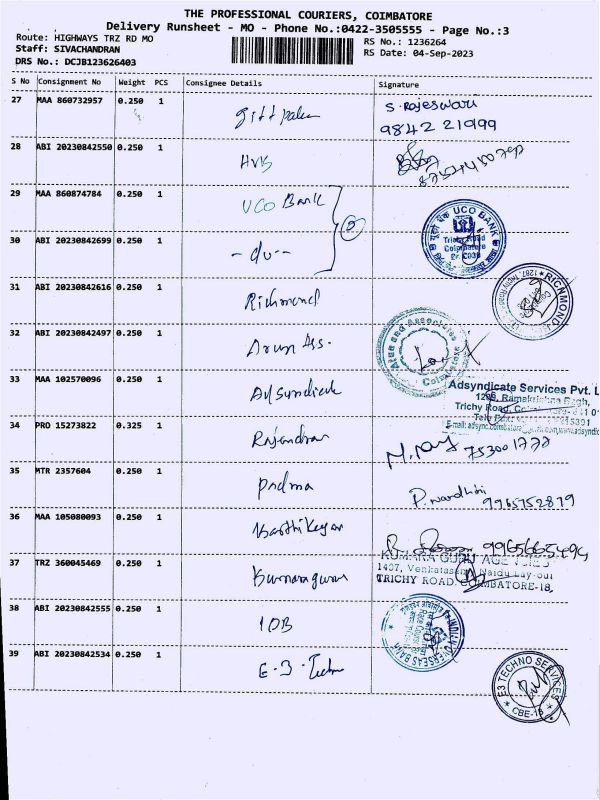 THE PROFESSIONAL COURIERS, COIMBATORE
Delivery Runsheet - MO - Phone No.:0422-3505555 - Page No.:3
Route: HIGHWAYS TRZ RD MO
RS No.: 1236264
Staff: SIVACHANDRAN
RS Date: 04-Sep-2023
DRS No.: DCJB123626403
S No Consignment No Weight PCS Consignee Details Signature
27 MAA 860732957 0.250 1 S. Rajeswari
9842 21999
28 ABI 20230842550 0.250 1 HVB
29 MAA 860874784 0.250 1 UCO Bank
UCO BANK
Trichy Road
Coimbatore
30 ABI 20230842699 0.250 1 - do --
2
31 ABI 20230842616 0.250 1 Richmond
RICHMOND
1287, Trichy Road
32 ABI 20230842497 0.250 1 Arun Ass.
Arun and Associates
Coimbatore
33 MAA 102570096 0.250 1 Adsyndicate
Adsyndicate Services Pvt. L
1286, Ramakrishna Bagh,
Trichy Road,
34 PRO 15273822 0.325 1 Rajendran
M. Raj
75300 1777
35 MTR 2357604 0.250 1 Padma
P. Vardhini
9965752879
36 MAA 105080093 0.250 1 Karthikeyan
9965665494
37 TRZ 360045469 0.250 1 Kumaraguru
KUMARA GURU AGENCIES
1407, Venkatasamy Naidu Lay-out
TRICHY ROAD, COIMBATORE-18.
38 ABI 20230842555 0.250 1 IOB
INDIAN OVERSEAS BANK
39 ABI 20230842534 0.250 1 E-3-Techno
E3 TECHNO SERVICES
CBE-18